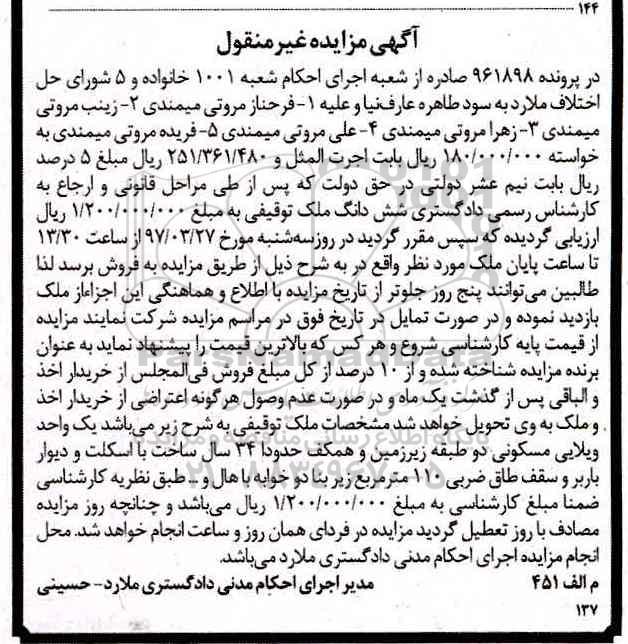 ۱۴۴
آگهی مزایده غیر منقول
در پرونده ۹۶۱۸۹۸ صادره از شعبه اجرای احکام شعبه ۱۰۰۱ خانواده و ۵ شورای حل
اختلاف ملارد به سود طاهره عارف‌نیا و علیه ۱- فرحناز مروتی میمندی ۲- زینب مروتی
میمندی ۳- زهرا مروتی میمندی ۴- علی مروتی میمندی ۵- فریده مروتی میمندی به
خواسته ۱۸۰/۰۰۰/۰۰۰ ریال بابت اجرت المثل و ۲۵۱/۳۶۱/۴۸۰ ریال مبلغ ۵ درصد
ریال بابت نیم عشر دولتی در حق دولت که پس از طی مراحل قانونی و ارجاع به
کارشناس رسمی دادگستری شش دانگ ملک توقیفی به مبلغ ۱/۲۰۰/۰۰۰/۰۰۰ ریال
ارزیابی گردیده که سپس مقرر گردید در روز سه‌شنبه مورخ ۹۷/۰۳/۲۷ از ساعت ۱۳/۳۰
تا ساعت پایان ملک مورد نظر واقع در به شرح ذیل از طریق مزایده به فروش برسد لذا
طالبین می‌توانند پنج روز جلوتر از تاریخ مزایده با اطلاع و هماهنگی این اجرا از ملک
بازدید نموده و در صورت تمایل در تاریخ فوق در مراسم مزایده شرکت نمایند مزایده
از قیمت پایه کارشناسی شروع و هر کس که بالاترین قیمت را پیشنهاد نماید به عنوان
برنده مزایده شناخته شده و از ۱۰ درصد از کل مبلغ فروش فی‌المجلس از خریدار اخذ
و الباقی پس از گذشت یک ماه و در صورت عدم وصول هرگونه اعتراضی از خریدار اخذ
و ملک به وی تحویل خواهد شد مشخصات ملک توقیفی به شرح زیر می‌باشد یک واحد
ویلایی مسکونی دو طبقه زیرزمین و همکف حدودا ۳۴ سال ساخت با اسکلت و دیوار
باربر و سقف طاق ضربی ۱۱۰ مترمربع زیر بنا دو خوابه با هال و - طبق نظریه کارشناسی
ضمنا مبلغ کارشناسی به مبلغ ۱/۲۰۰/۰۰۰/۰۰۰ ریال می‌باشد و چنانچه روز مزایده
مصادف با روز تعطیل گردید مزایده در فردای همان روز و ساعت انجام خواهد شد. محل
انجام مزایده اجرای احکام مدنی دادگستری ملارد می‌باشد.
م الف ۴۵۱ مدیر اجرای احکام مدنی دادگستری ملارد- حسینی
۱۳۷